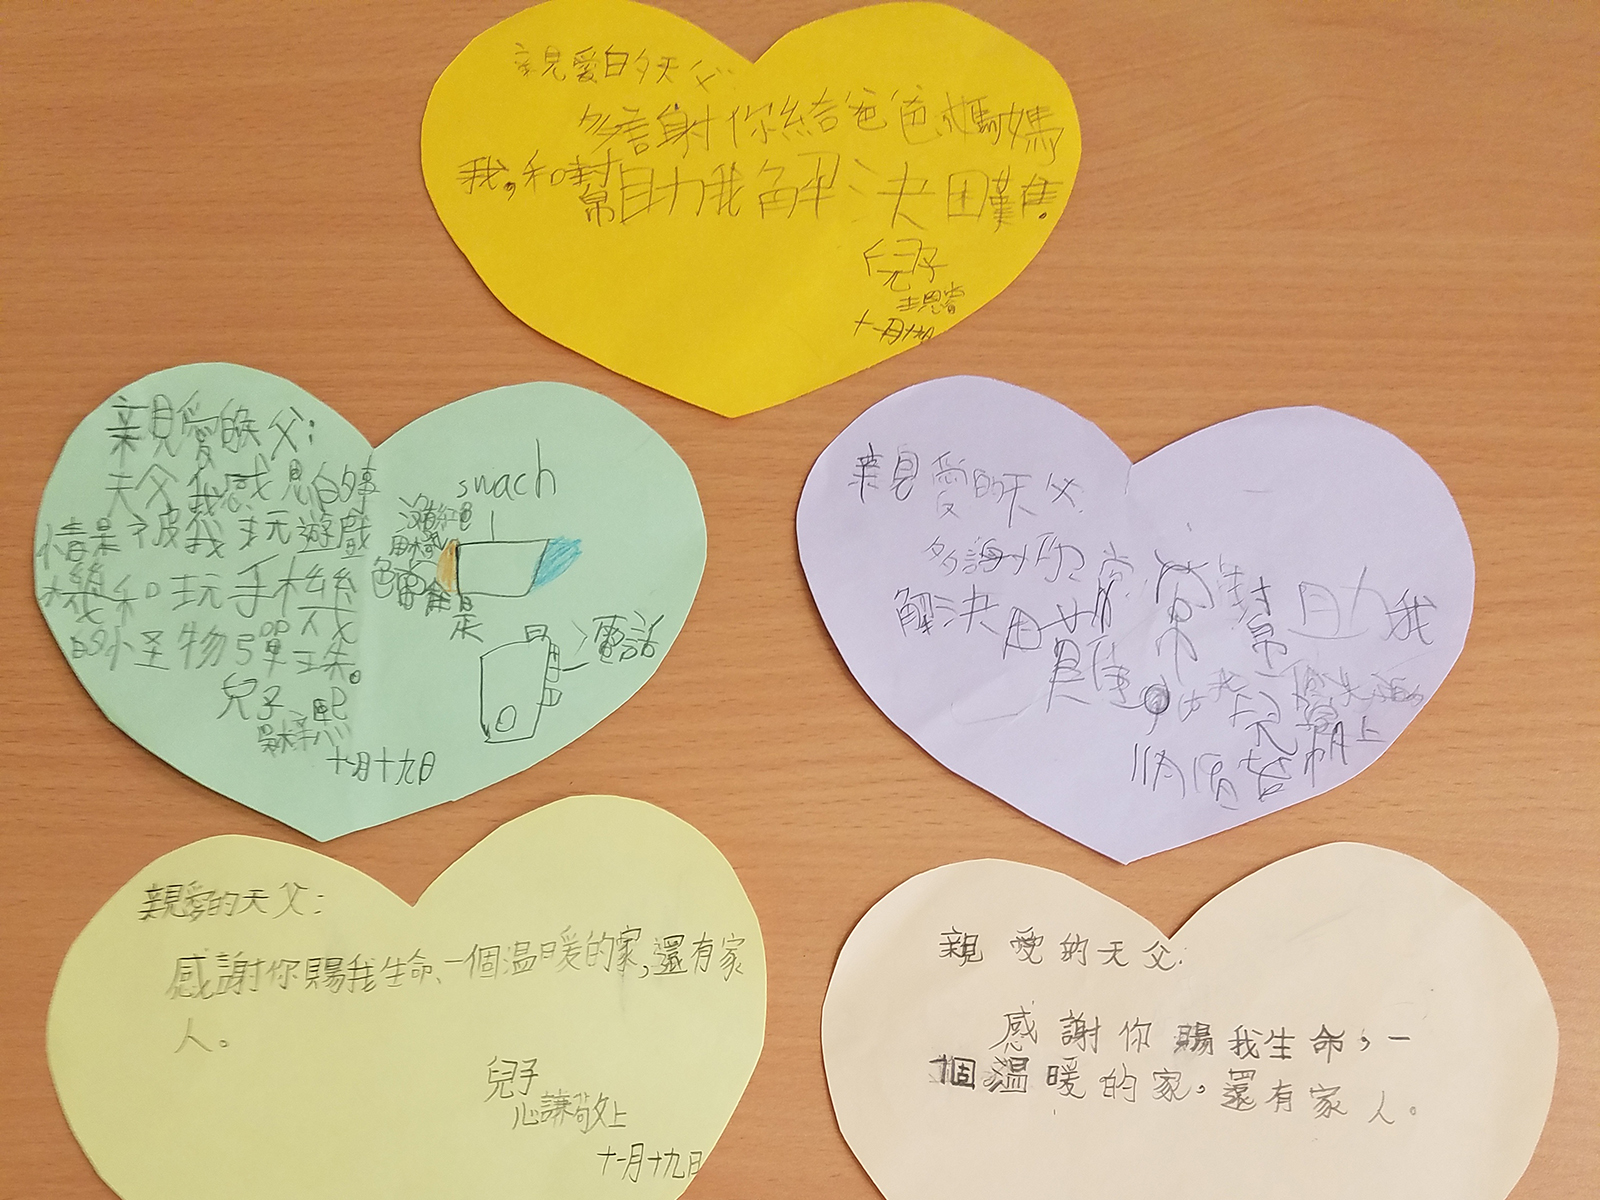 親愛的天父:
多謝你給爸爸媽媽
我,和幫助我解決困難。
兒子
十一月十九日
親愛的天父:
天父我感恩的事
情是被我玩遊戲
機和玩手機
的小怪物彈珠。
兒子
十一月十九日
swach
沒有紅色
用橘
色
電話
親愛的天父
多謝你常常幫助我
解決困難。
親愛的天父:
感謝你賜我生命、一個温暖的家,還有家
人。
兒子
心謙敬上
十一月十九日
親愛的天父:
感謝你賜我生命,一
個温暖的家。還有家人。